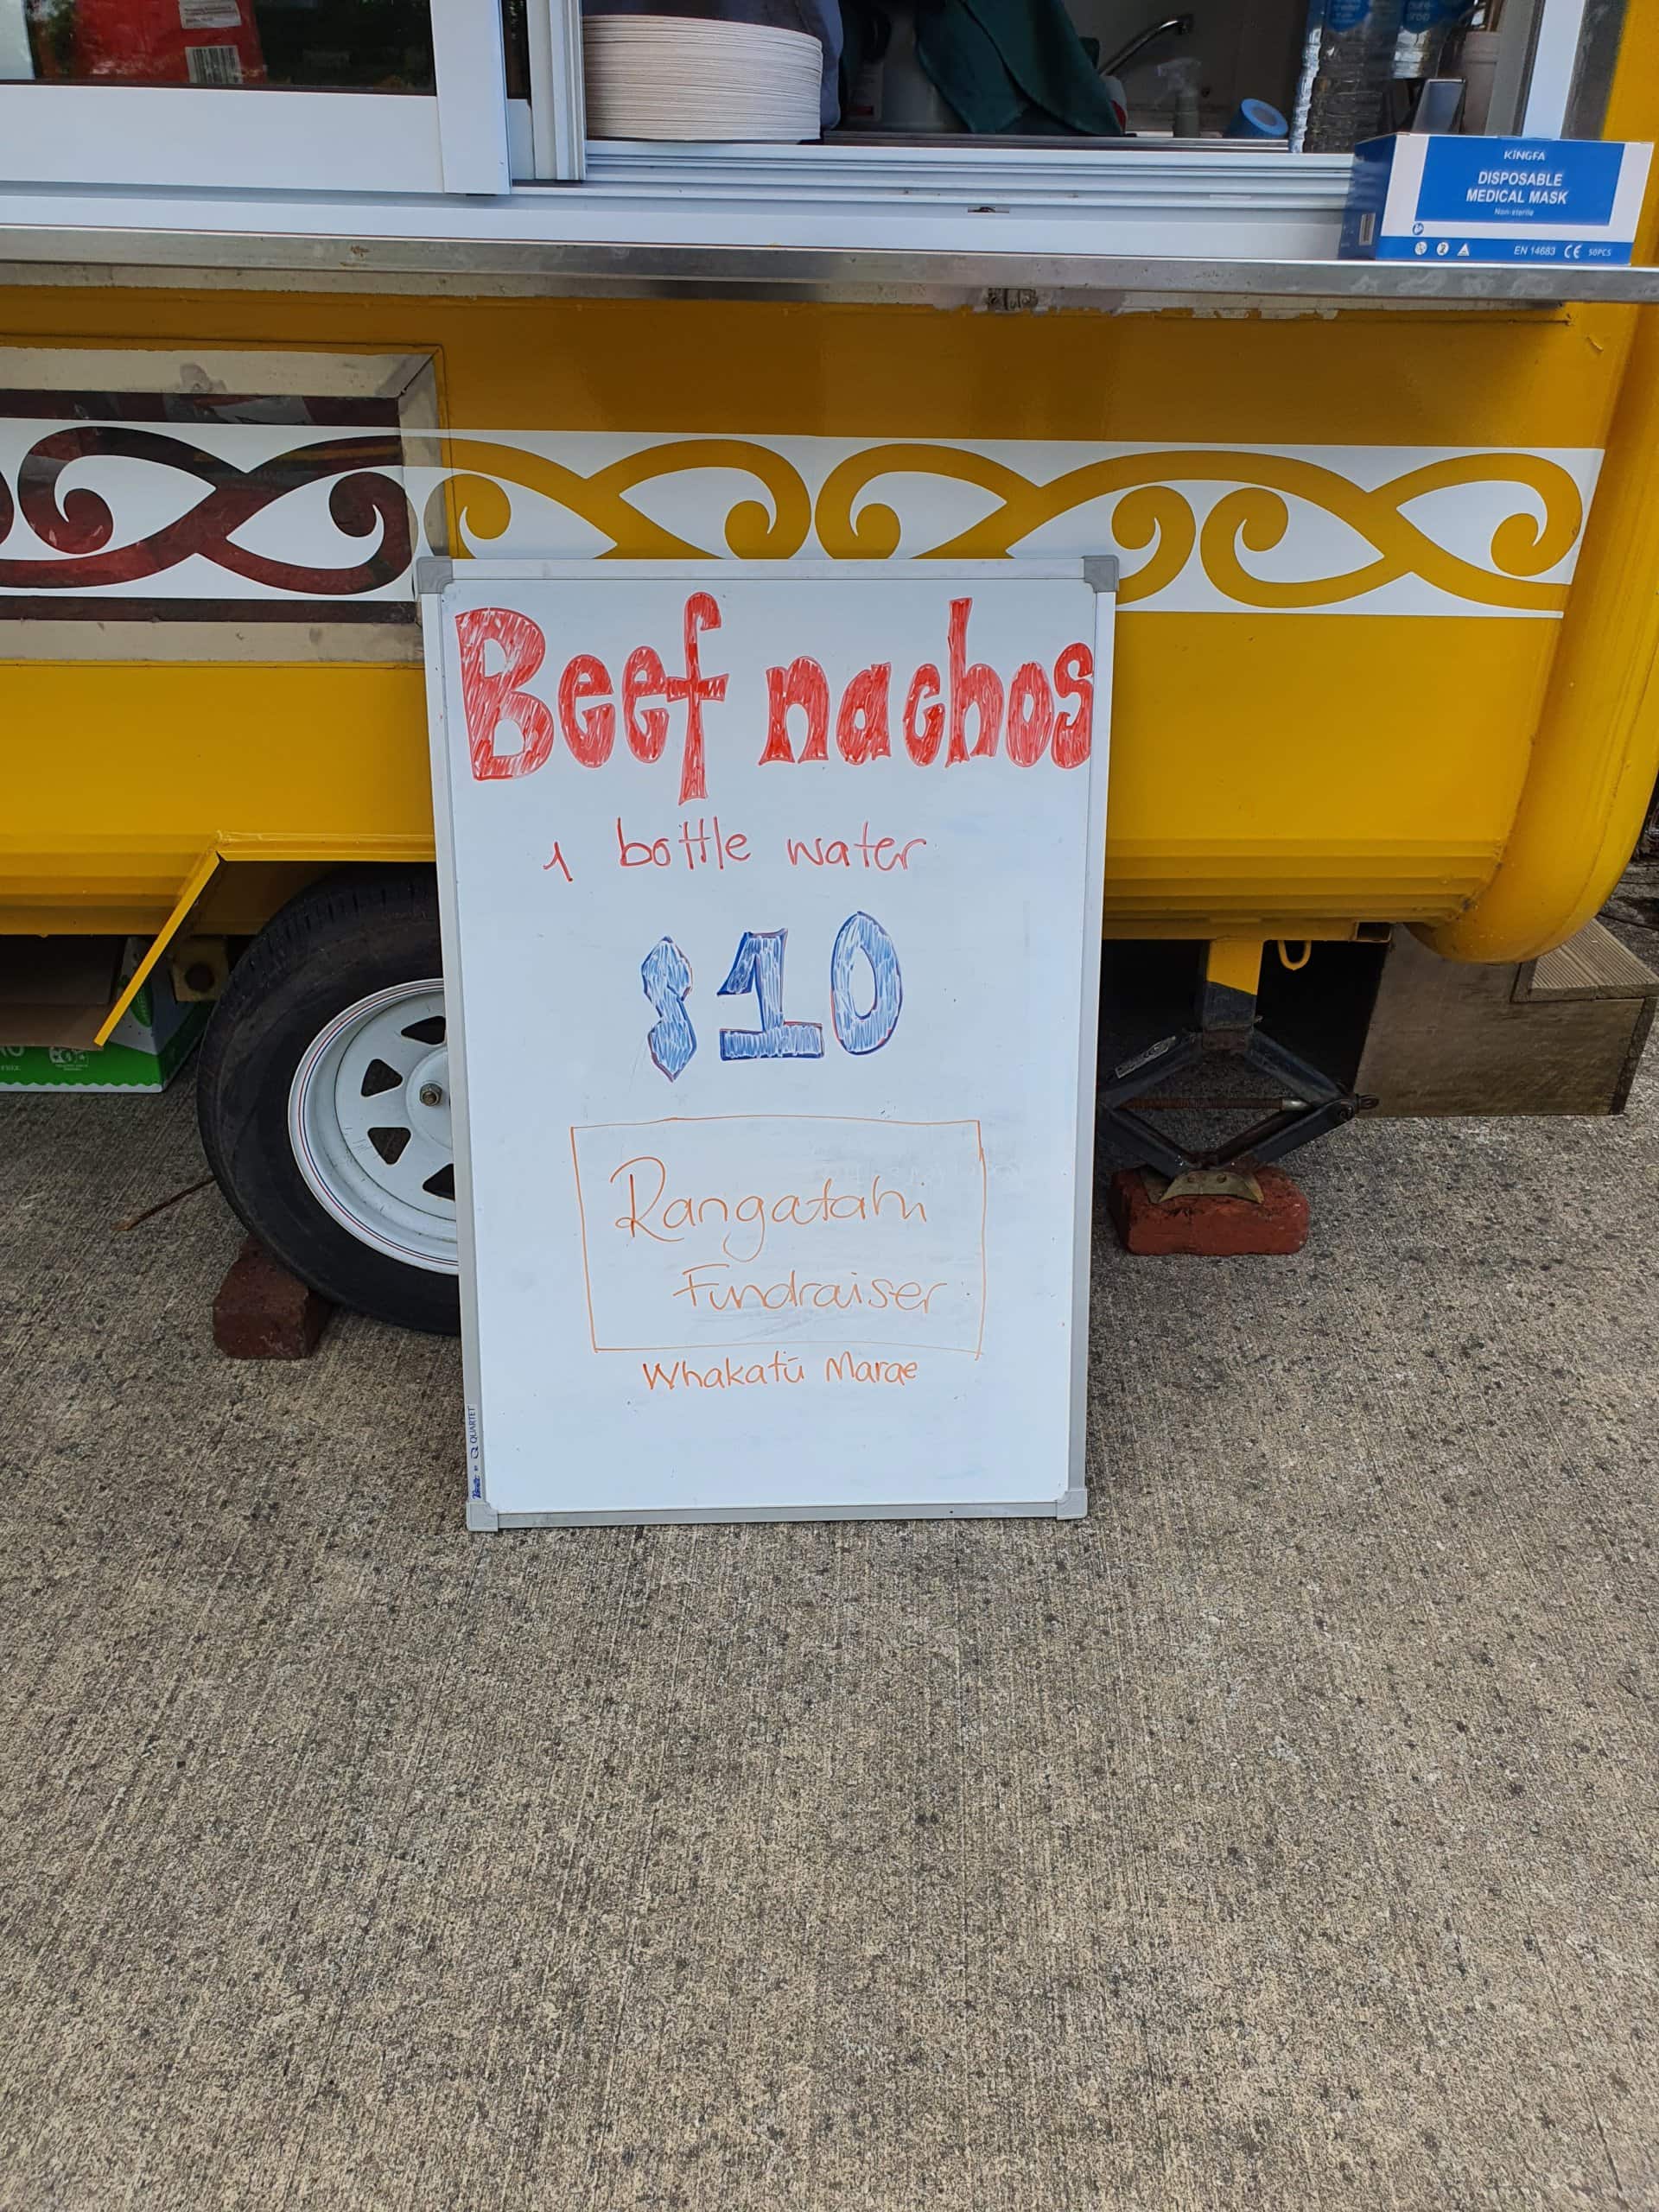 KINGFA
DISPOSABLE
MEDICAL MASK
Non-sterile
EN 14683 CE 50PCS
Beef nachos
1 bottle water
$10
Rangatahi
Fundraiser
Whakatū Marae
QUARTET